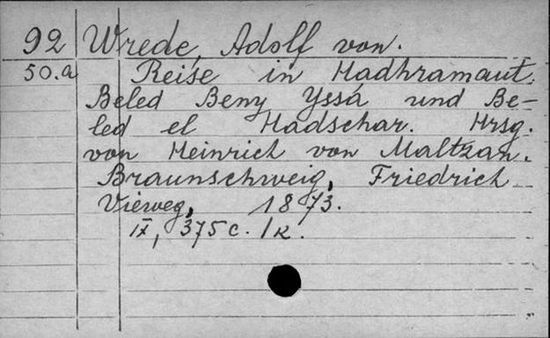 92 Wrede, Adolf von.
50.a Reise in Hadhramaut,
Beled Beny Yssá und Be-
led el Hadschar. Hrsg.
von Heinrich von Maltzan.
Braunschweig, Friedrich
Vieweg, 1873.
IX, 375 c. 1 к.